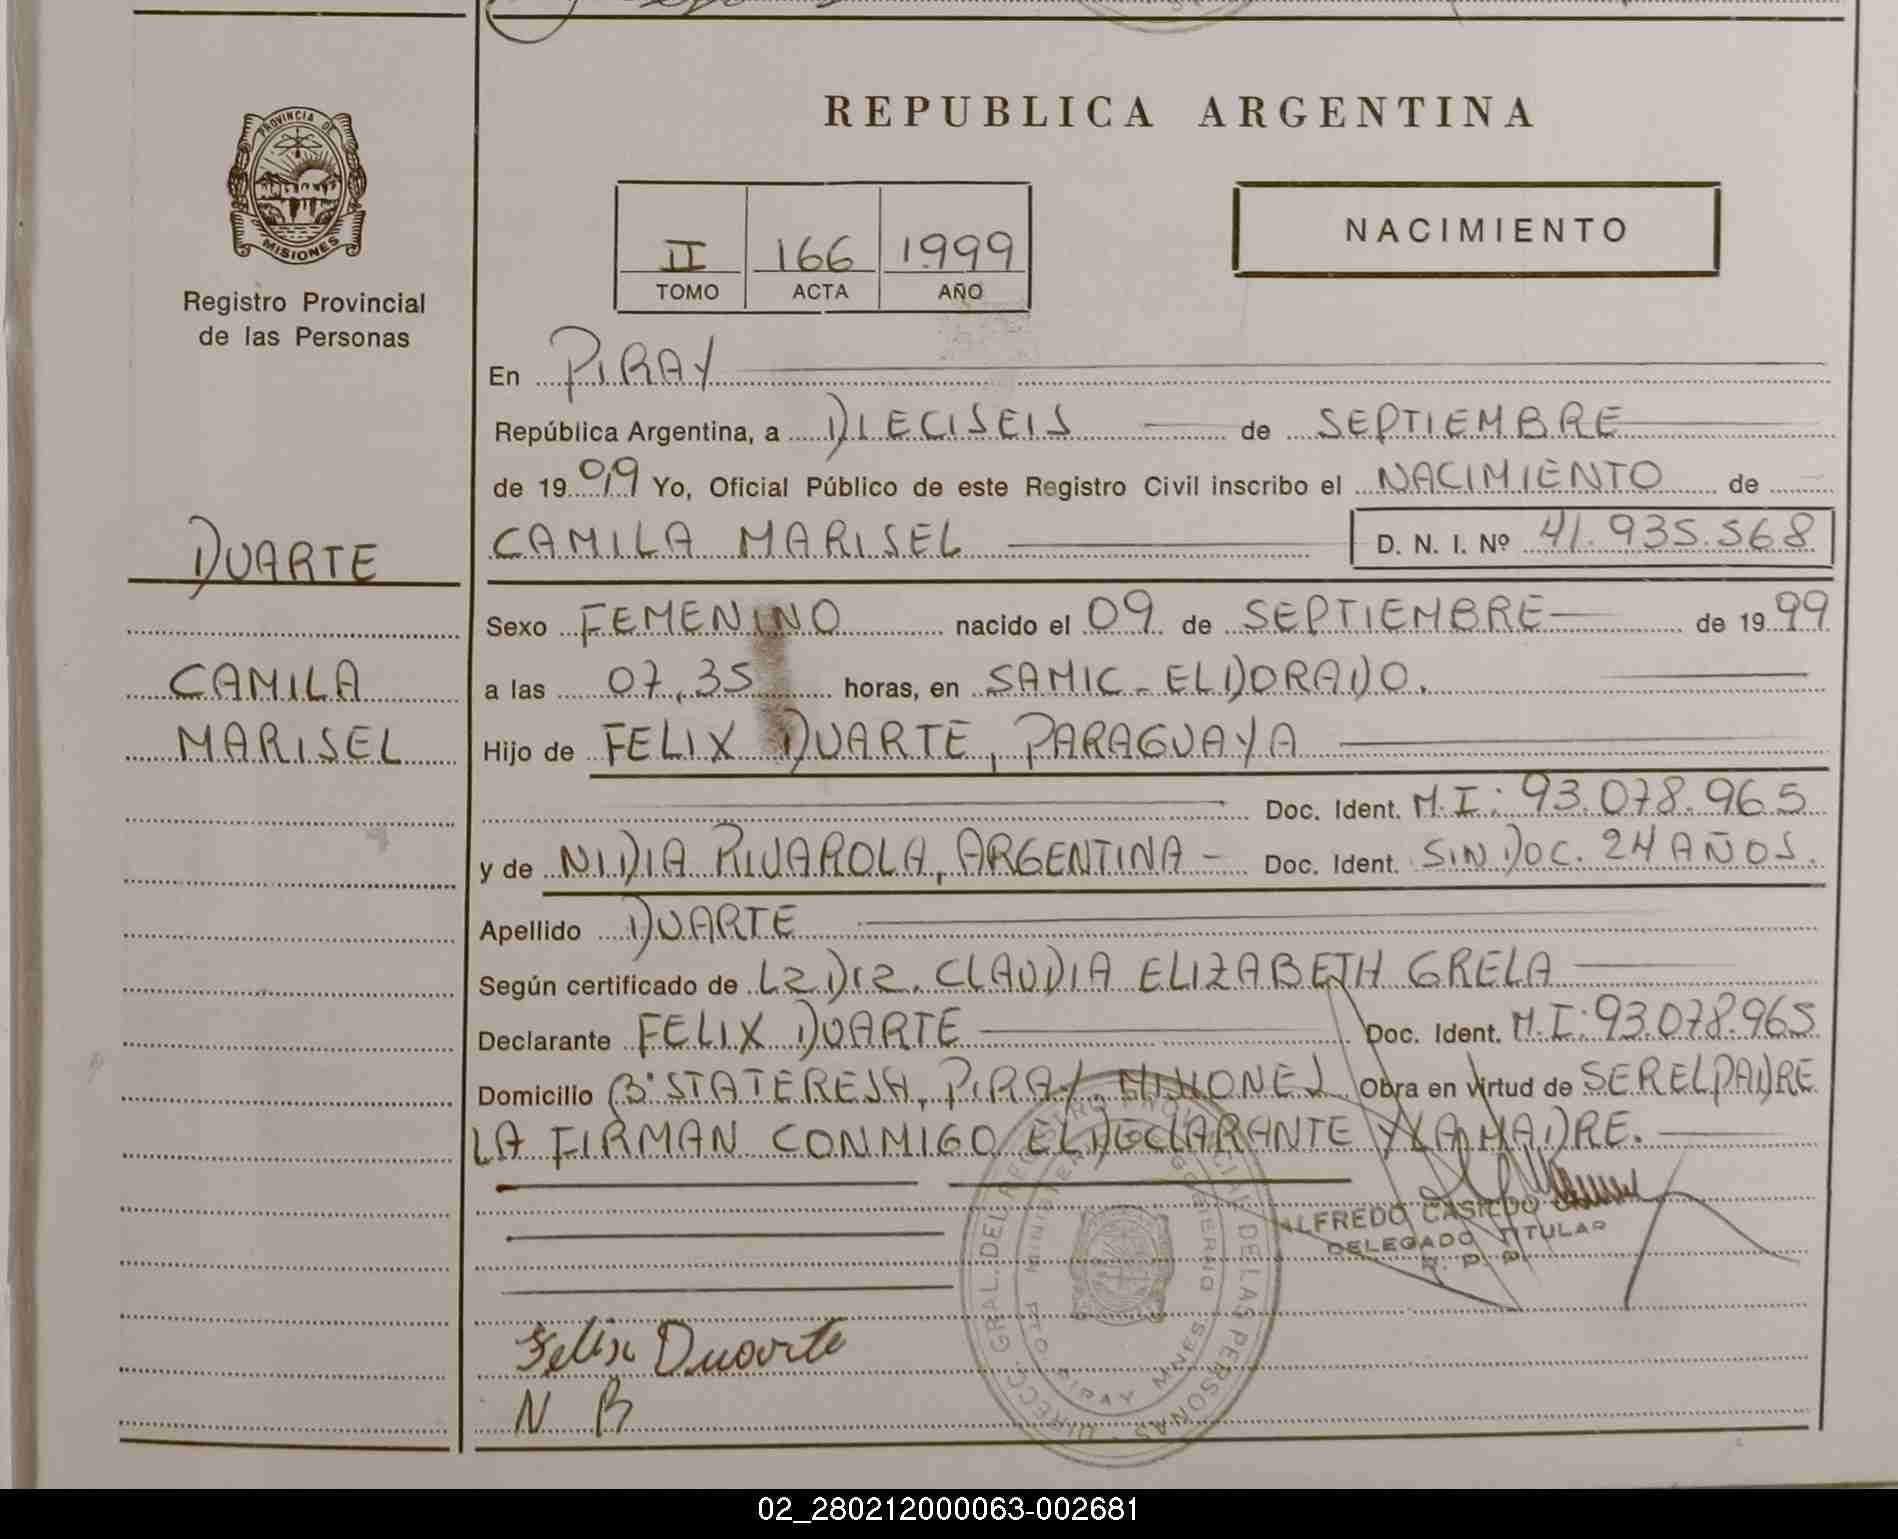 REPUBLICA ARGENTINA
PROVINCIA DE
MISIONES
Registro Provincial
de las Personas
II 166 1999
TOMO ACTA AÑO
NACIMIENTO
En PIRAY
República Argentina, a DIECISEIS de SEPTIEMBRE
de 1999 Yo, Oficial Público de este Registro Civil inscribo el NACIMIENTO de
CAMILA MARISEL D. N. I. Nº 41.935.568
DUARTE
CAMILA
MARISEL
Sexo FEMENINO nacido el 09 de SEPTIEMBRE de 1999
a las 07,35 horas, en SAMIC - ELDORADO.
Hijo de FELIX DUARTE, PARAGUAYA
Doc. Ident. M.I: 93.078.965
y de NIDIA RIVAROLA, ARGENTINA - Doc. Ident. SIN DOC. 24 AÑOS.
Apellido DUARTE
Según certificado de CLAUDIA ELIZABETH GRELA
Declarante FELIX DUARTE Doc. Ident. M.I: 93.078.965
Domicilio Bº STA TERESA, PIRAY MISIONES Obra en virtud de SER EL PADRE
LA FIRMAN CONMIGO EL DECLARANTE Y LA MADRE.
ALFREDO CASILDO
DELEGADO TITULAR
R. P. P.
DIRECC. GRAL. DEL REGISTRO PROVINCIAL DE LAS PERSONAS
MINISTERIO GOBIERNO
PTO PIRAY MNES
Felix Duarte
N R
02_280212000063-002681